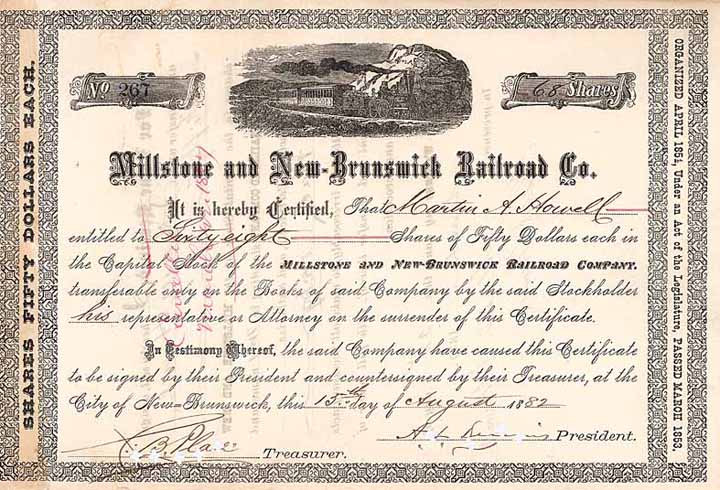 No 267
68 Shares
Millstone and New-Brunswick Railroad Co.
It is hereby Certified, That Martin A. Howell
entitled to Sixty eight Shares of Fifty Dollars each in
the Capital Stock of the MILLSTONE AND NEW-BRUNSWICK RAILROAD COMPANY.
transferable only on the Books of said Company by the said Stockholder
his representative or Attorney on the surrender of this Certificate.
In Testimony Whereof, the said Company have caused this Certificate
to be signed by their President and countersigned by their Treasurer, at the
City of New=Brunswick, this 15th day of August 1882
Treasurer.
President.
SHARES FIFTY DOLLARS EACH.
ORGANIZED APRIL 1854, Under an Act of the Legislature, PASSED MARCH 1853.